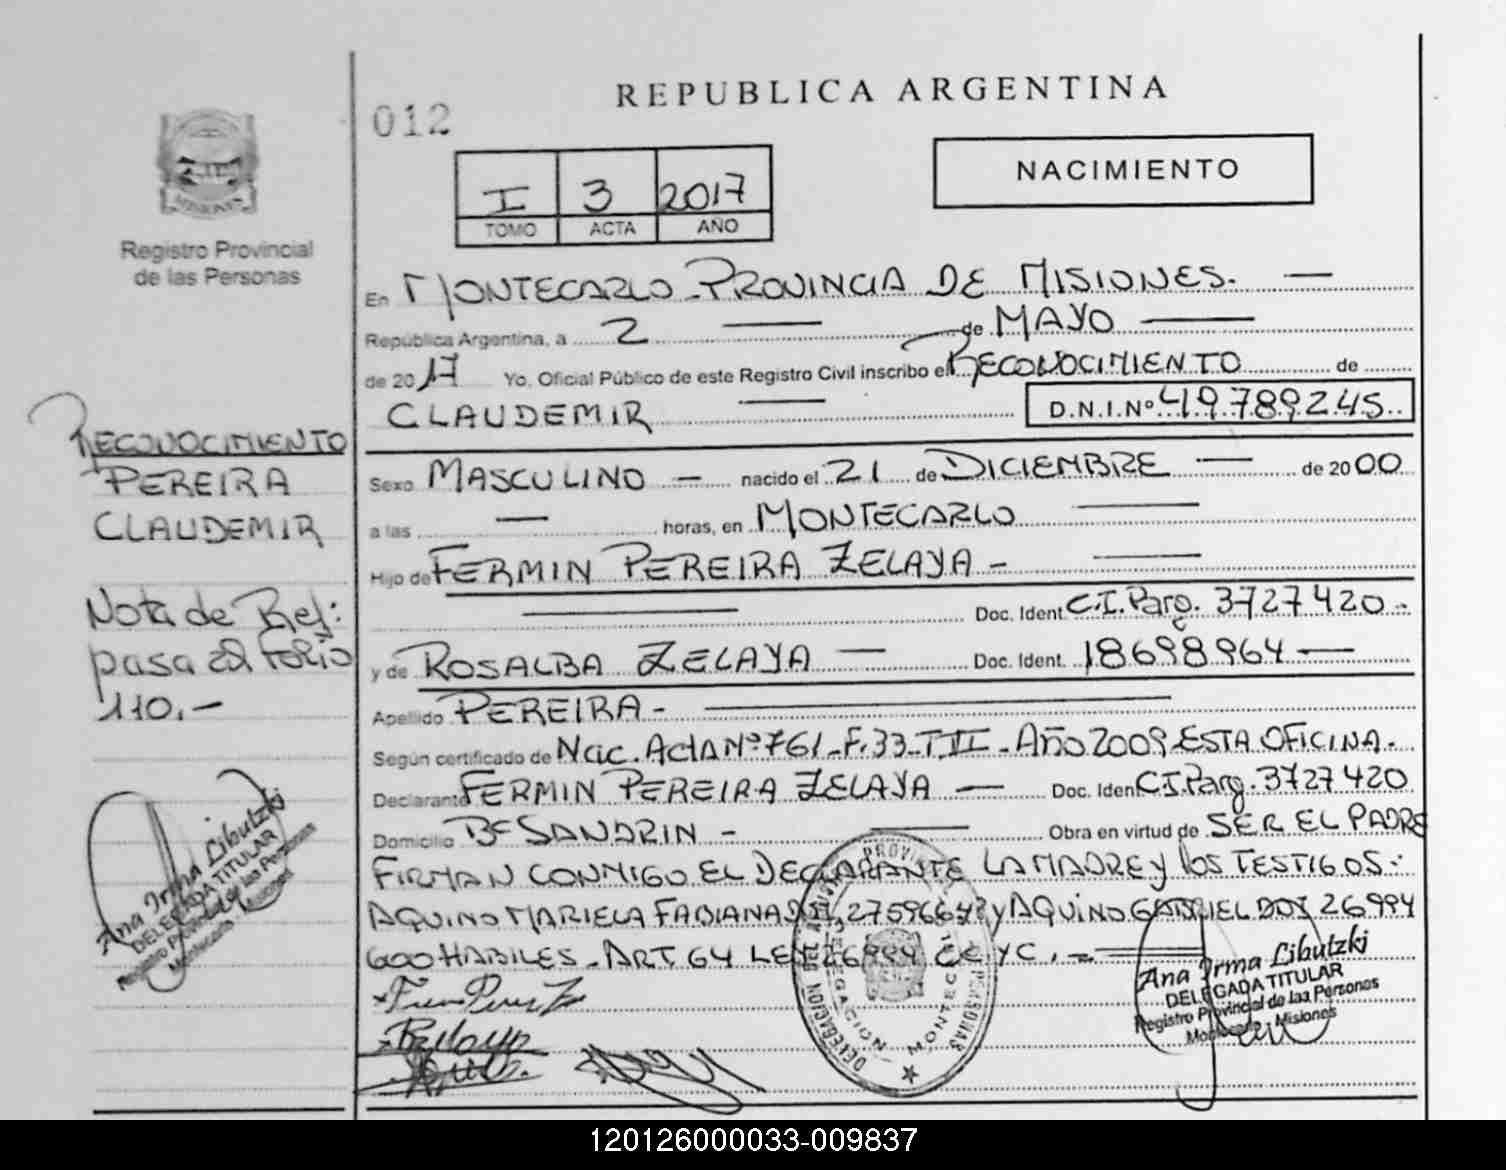 REPUBLICA ARGENTINA
012
NACIMIENTO
I 3 2017
TOMO ACTA AÑO
MISIONES
Registro Provincial
de las Personas
En MONTECARLO - PROVINCIA DE MISIONES. —
República Argentina, a 2 — de MAYO —
de 2017 Yo, Oficial Público de este Registro Civil inscribo el RECONOCIMIENTO de
CLAUDEMIR — D.N.I.Nº 49.789.245
RECONOCIMIENTO
PEREIRA
CLAUDEMIR
Nota de Ref:
pasa al Folio
110.-
Sexo MASCULINO — nacido el 21 de DICIEMBRE — de 2000
a las — horas, en MONTECARLO —
Hijo de FERMIN PEREIRA ZELAYA - —
— Doc. Ident. C.I. Parg. 3727420-
y de ROSALBA ZELAYA — Doc. Ident. 18698964 —
Apellido PEREIRA - —
Según certificado de Nac. Acta Nº 761 - F. 33 - T. II - Año 2009 ESTA OFICINA.-
Declarante FERMIN PEREIRA ZELAYA — Doc. Iden C.I. Parg. 3727420
Domicilio Bº SANDRIN - — Obra en virtud de SER EL PADRE
FIRMAN CONMIGO EL DECLARANTE LA MADRE y los TESTIGOS:
AQUINO MARIELA FABIANA y AQUINO GABRIEL DNI 26994
600 HABILES - ART. 64 LEY 26994 CC y C. -
Ana Irma Libutzki
DELEGADA TITULAR
Registro Provincial de las Personas
Montecarlo - Misiones
Ana Irma Libutzki
DELEGADA TITULAR
Registro Provincial de las Personas
Montecarlo - Misiones
DELEGACION MONTECARLO
120126000033-009837